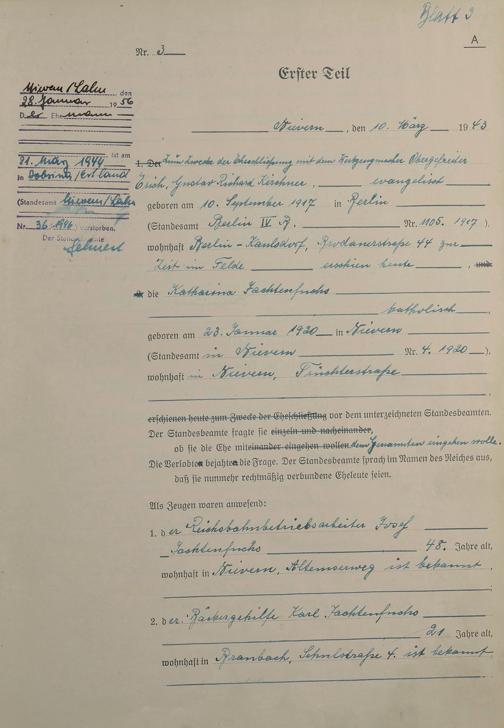 Blatt 3
A
Nr. 3
Erster Teil
Nievern/Lahn, den
28. Januar 1956
Der Ehemann
ist am
31. März 1944
in Dobrina/Estland
(Standesamt Nievern/Lahn
Nr. 36/1944) verstorben.
Der Standesbeamte
Nievern, den 10. März 1943
1. Der Zum Zwecke der Eheschließung mit dem Werkzeugmacher Obergefreiter
Erich, Gustav Richard Kirchner, evangelisch,
geboren am 10. September 1917 in Berlin
(Standesamt Berlin IV B, Nr. 1105. 1917),
wohnhaft Berlin-Kaulsdorf, Brodauerstraße 44 zur
Zeit im Felde erschien heute, und
die Katharina Fachtenfuchs
katholisch,
geboren am 23. Januar 1920 in Nievern
(Standesamt in Nievern Nr. 4. 1920),
wohnhaft in Nievern, Früchterstraße
erschienen heute zum Zwecke der Eheschließung vor dem unterzeichneten Standesbeamten.
Der Standesbeamte fragte sie einzeln und nacheinander,
ob sie die Ehe miteinander eingehen wollen dem Genannten eingehen wolle.
Die Verlobten bejahten die Frage. Der Standesbeamte sprach im Namen des Reiches aus,
daß sie nunmehr rechtmäßig verbundene Eheleute seien.
Als Zeugen waren anwesend:
1. der Reichsbahnbetriebsarbeiter Josef
Fachtenfuchs 48. Jahre alt,
wohnhaft in Nievern, Altemserweg ist bekannt,
2. der Bäckergehilfe Karl Fachtenfuchs
21 Jahre alt,
wohnhaft in Braubach, Schulstraße 4. ist bekannt